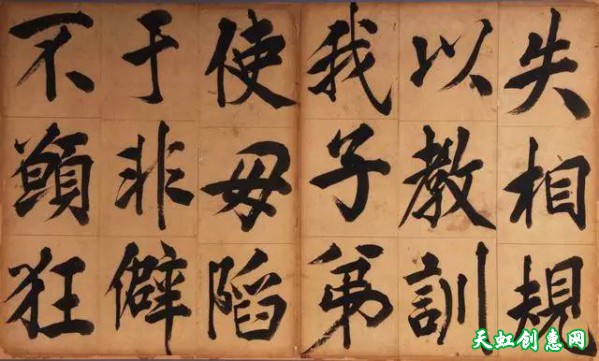 失相規
以教訓
我子弟
使毋陷
于非僻
不顛狂
天虹创惠网